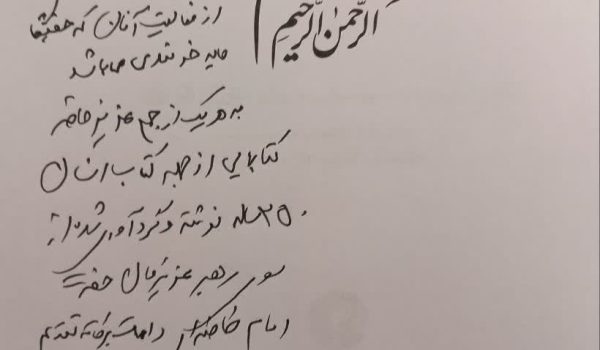 الرحمن الرحیم
از فعالیت آنان که حقیقتا
مایه خرسندی میباشد
به هر یک از جمع عزیز حاضر
کتابهایی از جمله کتاب انسان
۲۵۰ ساله نوشته و گردآوری شده از
سوی رهبر عزیزمان حضرت
امام خامنه‌ای دامت برکاته تقدیم